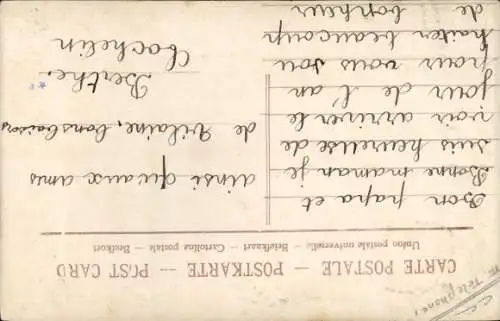 CARTE POSTALE — POSTKARTE — POST CARD
Union postale universelle — Briefkaart — Cartolina postale — Brefkort
Bon papa et
Bonne maman je
suis heureuse de
voir arriver le
jour de l'an
pour vous sou
haiter beaucoup
de bonheur
ainsi qu'aux amis
de Vilaine, bons baisers
Berthe.
Cochelin
Telephone